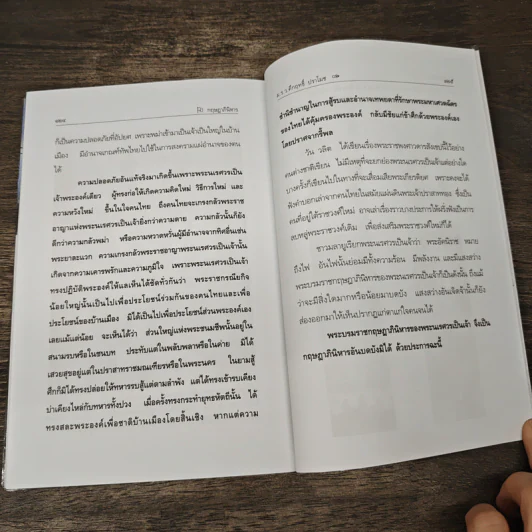 ๑๑๔ กฤษฎาภินิหาร
ก็เป็นความปลอดภัยที่อัปยศ เพราะพม่าเข้ามาเป็นเจ้าเป็นใหญ่ในบ้าน
เมือง มีอำนาจเกณฑ์ทัพไทยไปใช้ในการสงครามแผ่อำนาจของตน
ได้
ความปลอดภัยอันแท้จริงมาเกิดขึ้นเพราะพระนเรศวรเป็น
เจ้าพระองค์เดียว ผู้ทรงก่อให้เกิดความคิดใหม่ วิธีการใหม่ และ
ความหวังใหม่ ขึ้นในใจคนไทย ถึงคนไทยจะเกรงกลัวพระราช
อาญาแห่งพระนเรศวรเป็นเจ้ายิ่งกว่าความตาย ความกลัวนั้นก็ยัง
ดีกว่าความกลัวพม่า หรือความหวาดหวั่นผู้มีอำนาจจากทิศอื่นเช่น
พระยาละแวก ความเกรงกลัวพระราชอาญาพระนเรศวรเป็นเจ้านั้น
เกิดจากความเคารพรักและความภูมิใจ เพราะพระนเรศเป็นเจ้า
ทรงปฏิบัติพระองค์ให้แลเห็นได้ชัดทั่วกันว่า พระราชกรณียกิจ
น้อยใหญ่นั้นเป็นไปเพื่อประโยชน์ร่วมกันของคนไทยและเพื่อ
ประโยชน์ของบ้านเมือง มิได้เป็นไปเพื่อประโยชน์ส่วนพระองค์เอง
เลยแม้แต่น้อย จะเห็นได้ว่า ส่วนใหญ่แห่งพระชนมชีพนั้นอยู่ใน
สนามรบหรือในชนบท ประทับแต่ในพลับพลาหรือในค่าย มิได้
เสวยสุขอยู่แต่ในปราสาทราชมณเฑียรหรือในพระนคร ในยามสู้
ศึกก็มิได้ทรงปล่อยให้ทหารรบสู้แต่ตามลำพัง แต่ได้ทรงเข้ารบเคียง
บ่าเคียงไหล่กับทหารทั้งปวง เมื่อครั้งทรงกระทำยุทธหัตถีนั้น ได้
ทรงสละพระองค์เพื่อชาติบ้านเมืองโดยสิ้นเชิง หากแต่ความ
ม.ร.ว.คึกฤทธิ์ ปราโมช ๑๑๕
ชำนิชำนาญในการสู้รบและอำนาจเทพยดาที่รักษาพระมหาเศวตฉัตร
ของไทยได้คุ้มครองพระองค์ กลับมีชัยแก่ข้าศึกด้วยพระองค์เอง
โดยปราศจากรี้พล
วัน วลิต ได้เขียนเรื่องพระราชพงศาวดารสังเขปนี้ไว้อย่าง
คนต่างชาติเขียน ไม่มีเหตุที่จะยกย่องพระนเรศวรเป็นเจ้าแต่อย่างใด
บางครั้งก็เขียนไปในทางที่จะเสื่อมเสียพระเกียรติยศ เพราะคงจะได้
ฟังคำบอกเล่าจากคนไทยในสมัยแผ่นดินพระเจ้าปราสาททอง ซึ่งเป็น
คนที่อยู่ใต้ราชวงศ์ใหม่ อาจเล่าเรื่องราวบางประการให้ฝรั่งฟังเป็นการ
ลบหลู่พระราชวงศ์เดิม เพื่อส่งเสริมพระราชวงศ์ใหม่ก็ได้
ชาวมลายูเรียกพระนเรศวรเป็นเจ้าว่า พระอัคนีราช หมาย
ถึงไฟ อันไฟนั้นย่อมมีทั้งความร้อน มีพลังงาน และมีแสงสว่าง
พระบรมราชกฤษฎาภินิหารของพระนเรศวรเป็นเจ้าก็เป็นดังนั้น ถึงแม้
ว่าจะมีสิ่งใดมากหรือน้อยมาบดบัง แสงสว่างอันเจิดจ้านั้นก็ยัง
ส่องออกมาให้เห็นปรากฏแก่ตาแก่ใจคนจนได้
พระบรมราชกฤษฎาภินิหารของพระนเรศวรเป็นเจ้า จึงเป็น
กฤษฎาภินิหารอันบดบังมิได้ ด้วยประการฉะนี้